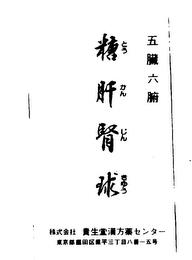 五臓六腑
糖肝腎球
とう かん じん きゅう
株式会社 貴生堂漢方薬センター
東京都墨田区横平三丁目八番一五号